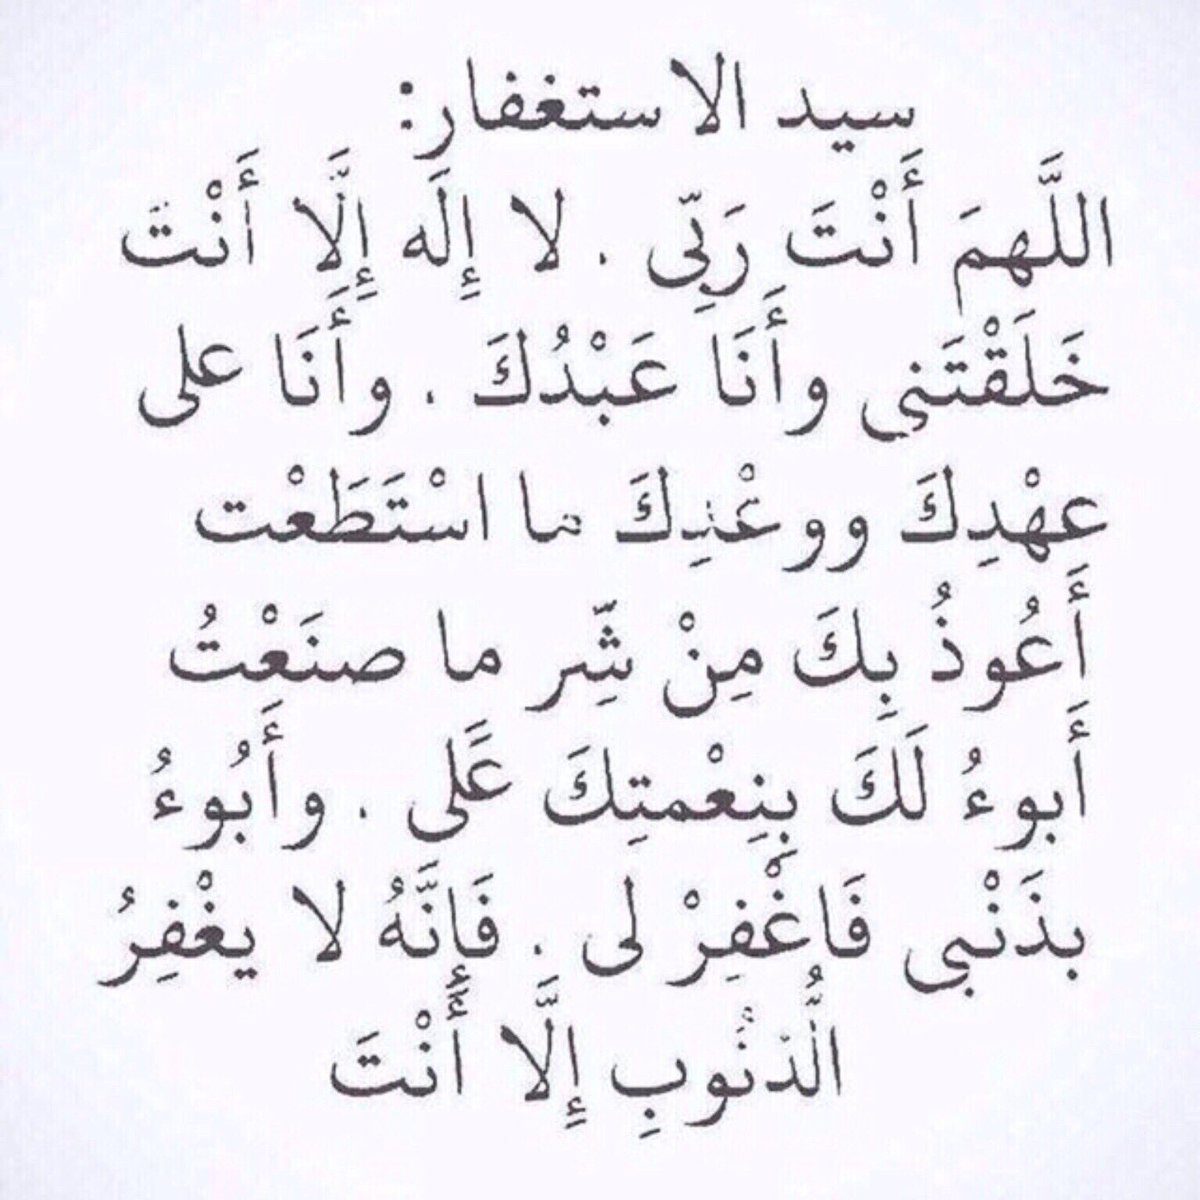 سيد الاستغفار:
اللَّهمَ أَنْتَ رَبِّى . لا إِلَه إِلَّا أَنْتَ
خَلَقْتَنى وأَنَا عَبْدُكَ . وأَنَا على
عهْدِكَ ووعْدِكَ ما اسْتَطَعْت
أَعُوذُ بِكَ مِنْ شِّر ما صنَعْتُ
أَبوءُ لَكَ بِنِعْمتِكَ عَلى . وأَبُوءُ
بذَنْبى فَاغْفِرْ لى . فَإِنَّهُ لا يغْفِرُ
الُّذنُوبِ إِلَّا أَنْتَ